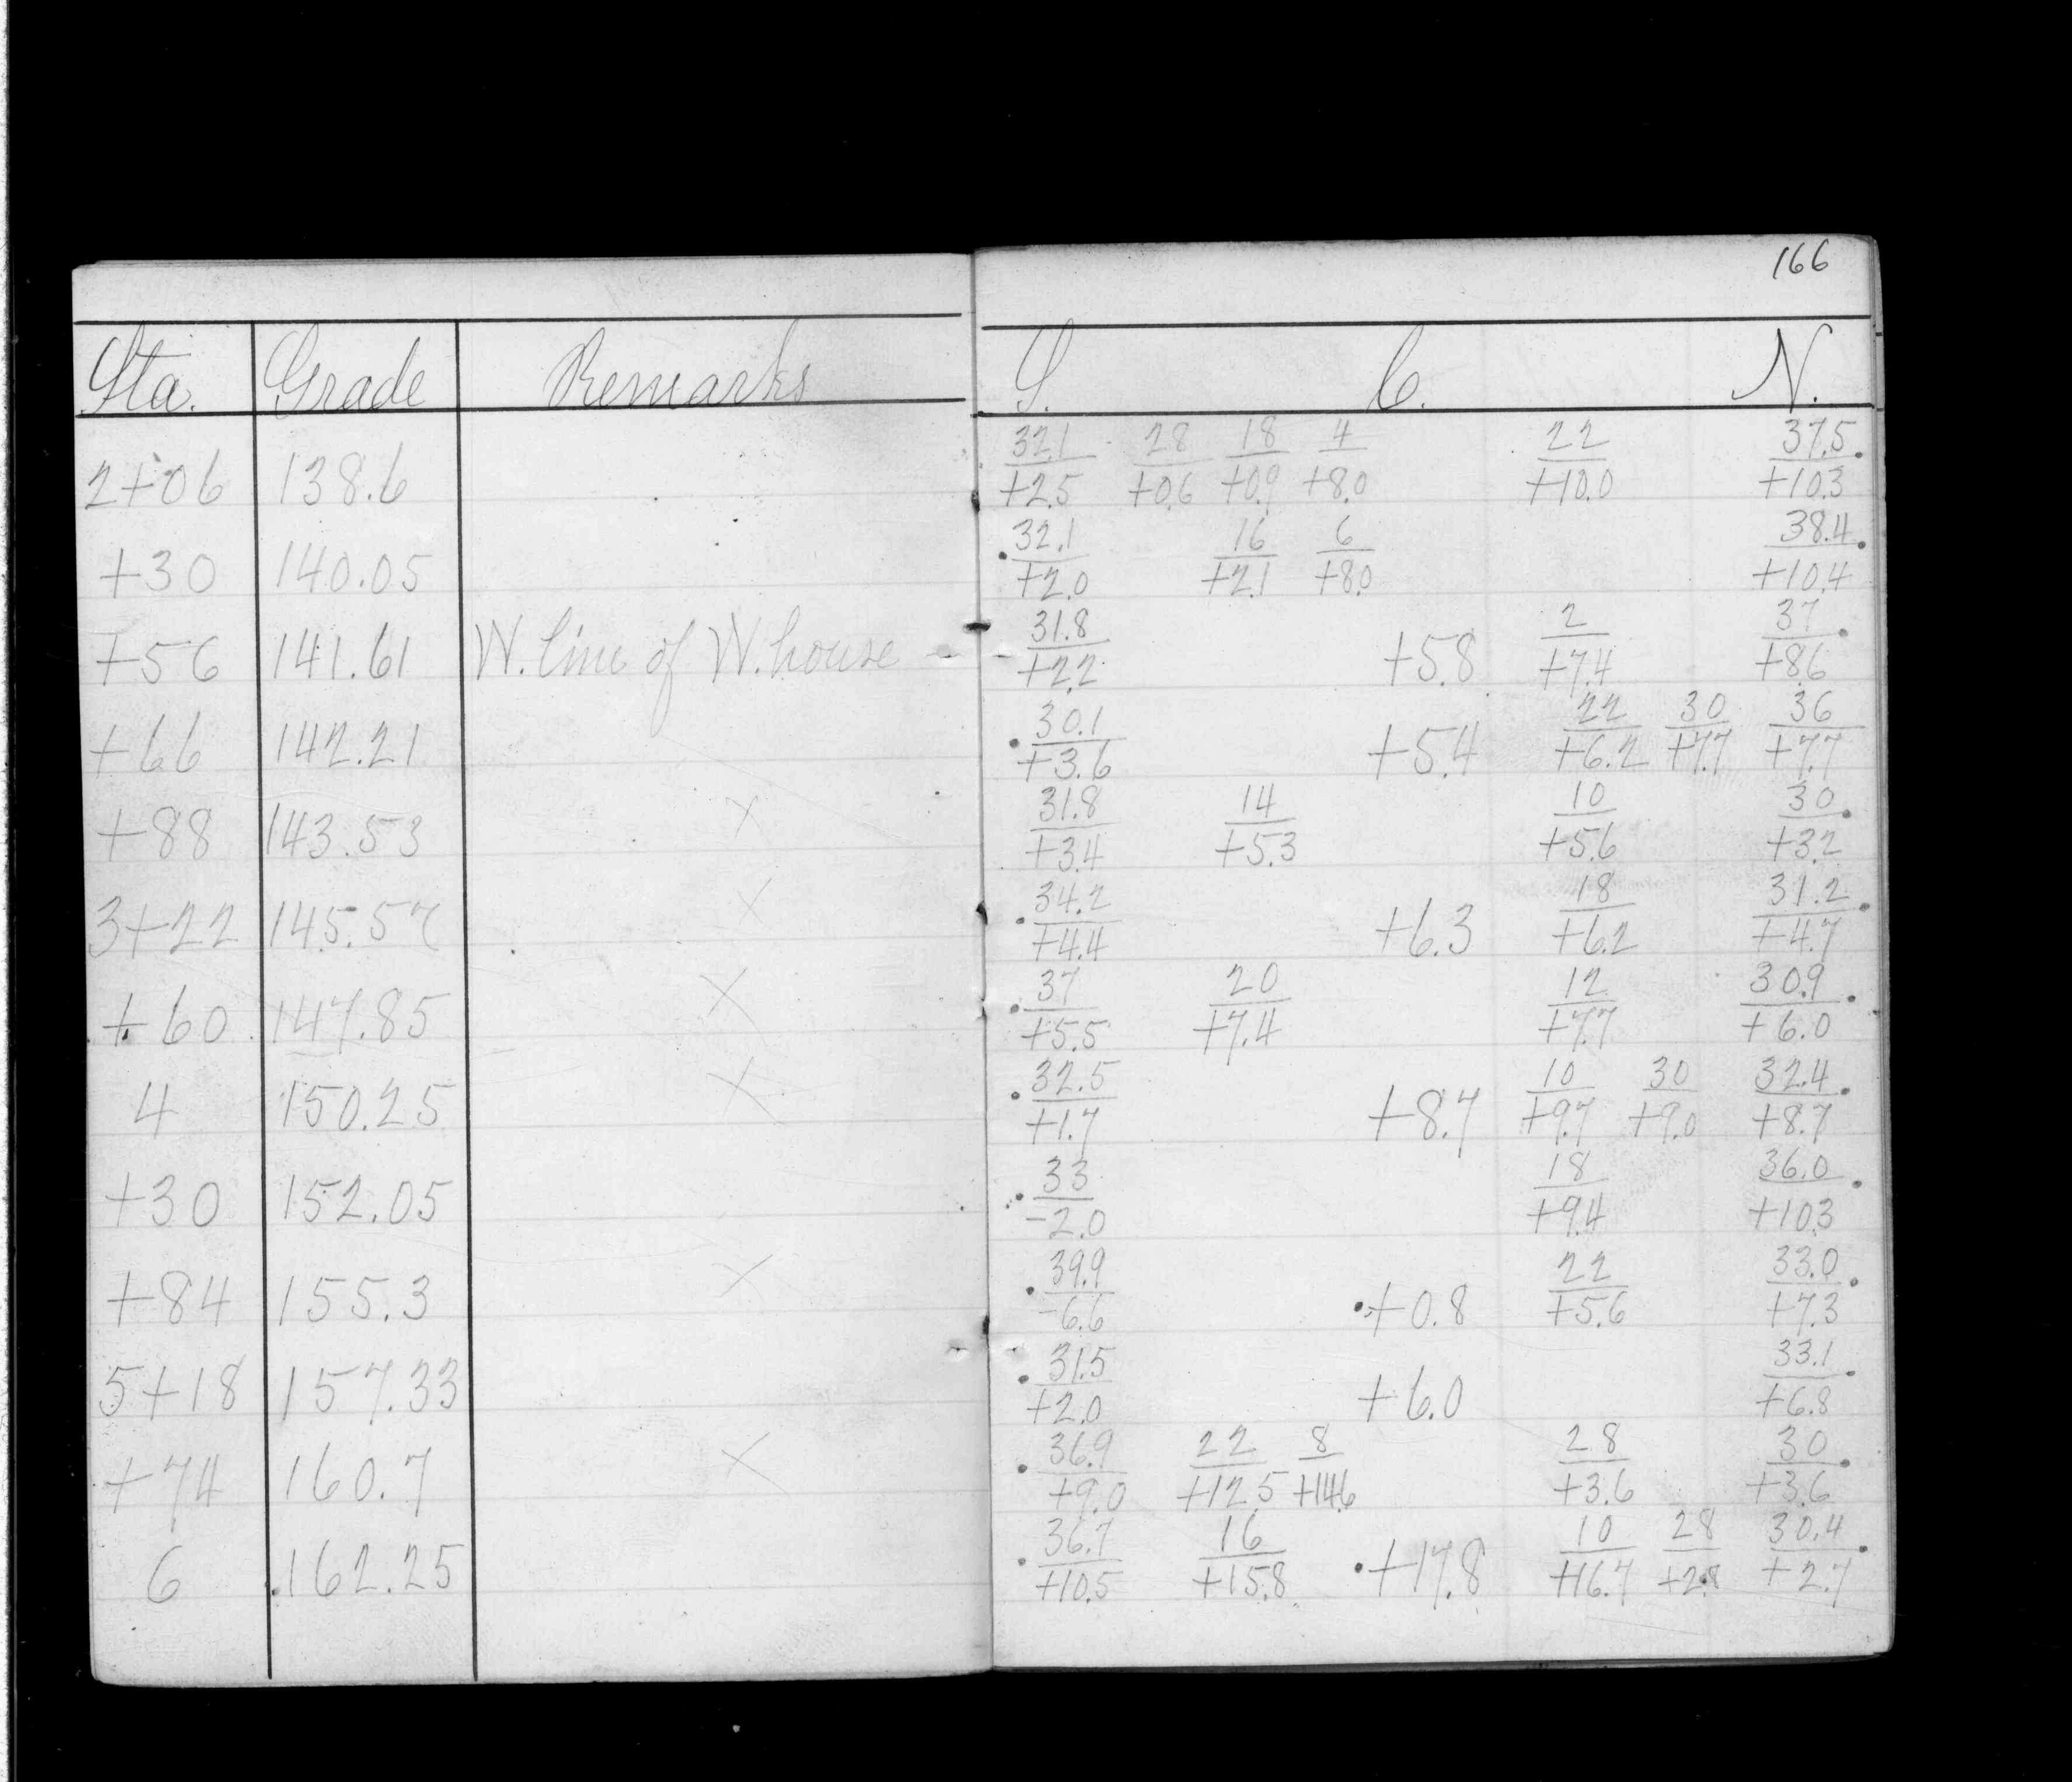 166
Sta. Grade Remarks S. C. N.
32.1 28 18 4 22 37.5
2+06 138.6 +2.5 +0.6 +0.9 +8.0 +10.0 +10.3
32.1 16 6 38.4
+30 140.05 +2.0 +2.1 +8.0 +10.4
31.8 2 37
+56 141.61 W. line of W. house - +2.2 +5.8 +7.4 +8.6
30.1 22 30 36
+66 142.21 +3.6 +5.4 +6.2 +7.7 +7.7
31.8 14 10 30
+88 143.53 × +3.4 +5.3 +5.6 +3.2
34.2 18 31.2
3+22 145.57 × +4.4 +6.3 +6.2 +4.7
37 20 12 30.9
+60 147.85 × +5.5 +7.4 +7.7 +6.0
32.5 10 30 32.4
4 150.25 × +1.7 +8.7 +9.7 +9.0 +8.7
33 18 36.0
+30 152.05 -2.0 +9.4 +10.3
39.9 22 33.0
+84 155.3 × -6.6 +0.8 +5.6 +7.3
31.5 33.1
5+18 157.33 +2.0 +6.0 +6.8
36.9 22 8 28 30
+74 160.7 × +9.0 +12.5 +14.6 +3.6 +3.6
36.7 16 10 28 30.4
6 162.25 +10.5 +15.8 +17.8 +16.7 +2.8 +2.7